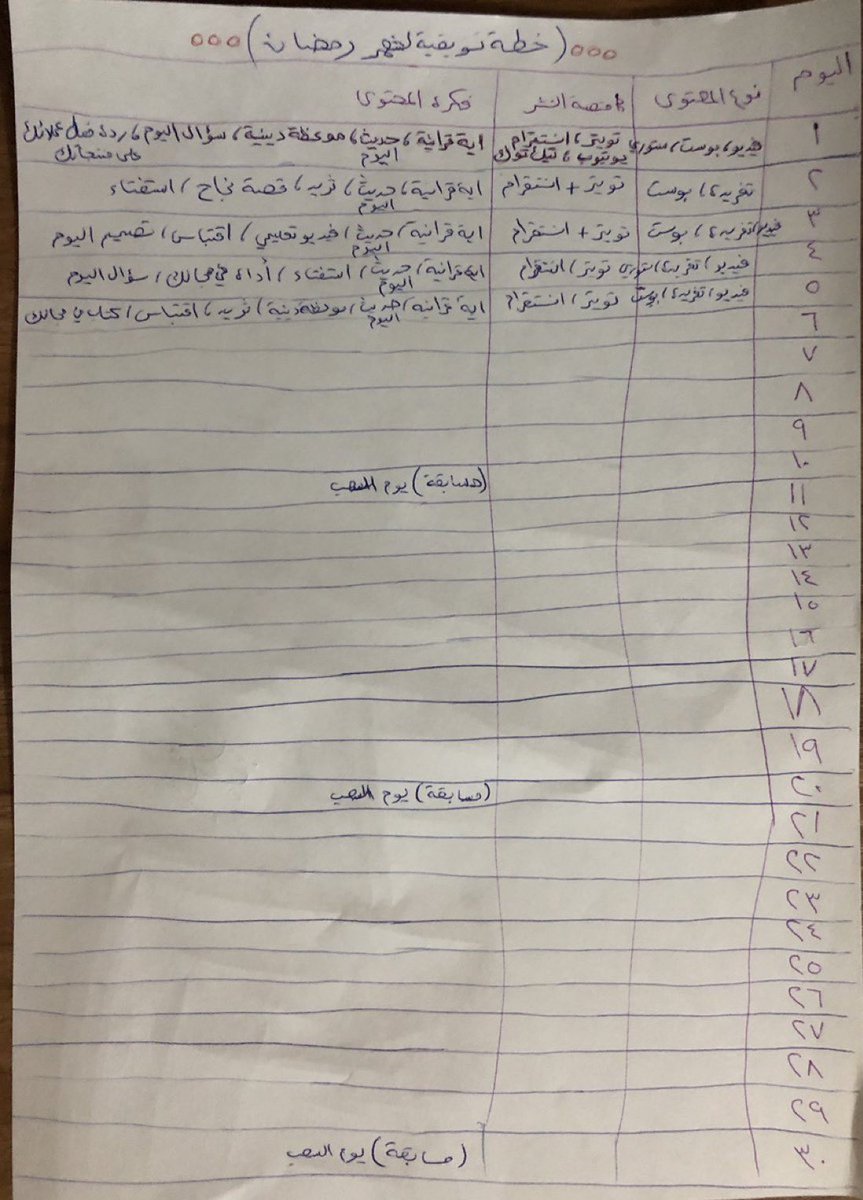 ٥٥٥ (خطة تسويقية لشهر رمضان) ٥٥٥
اليوم نوع المحتوى منصة النشر فكرة المحتوى
١ فيديو، بوست، ستوري تويتر، انستقرام يوتيوب، تيك توك اية قرانية، حديث اليوم، موعظة دينية، سؤال اليوم، ردة فعل عملائك على منتجاتك
٢ تغريدة، بوست تويتر + انستقرام اية قرانية، حديث اليوم، ثريد، قصة نجاح / استفتاء
٣ فيديو، تغريدة، بوست تويتر + انستقرام اية قرانية، حديث اليوم / فيديو تعليمي / اقتباس / تصميم اليوم
٤ فيديو، تغريدة، ستوري تويتر، انستقرام اية قرانية، حديث اليوم / استفتاء / أداة في مجالك / سؤال اليوم
٥ فيديو، تغريدة، بوست تويتر، انستقرام اية قرانية / حديث اليوم / موعظة دينية / ثريد، اقتباس / في مجالك
٦
٧
٨
٩
١٠ (مسابقة) يوم السحب
١١
١٢
١٣
١٤
١٥
١٦
١٧
١٨
١٩
٢٠ (مسابقة) يوم السحب
٢١
٢٢
٢٣
٢٤
٢٥
٢٦
٢٧
٢٨
٢٩
٣٠ (مسابقة) يوم السحب